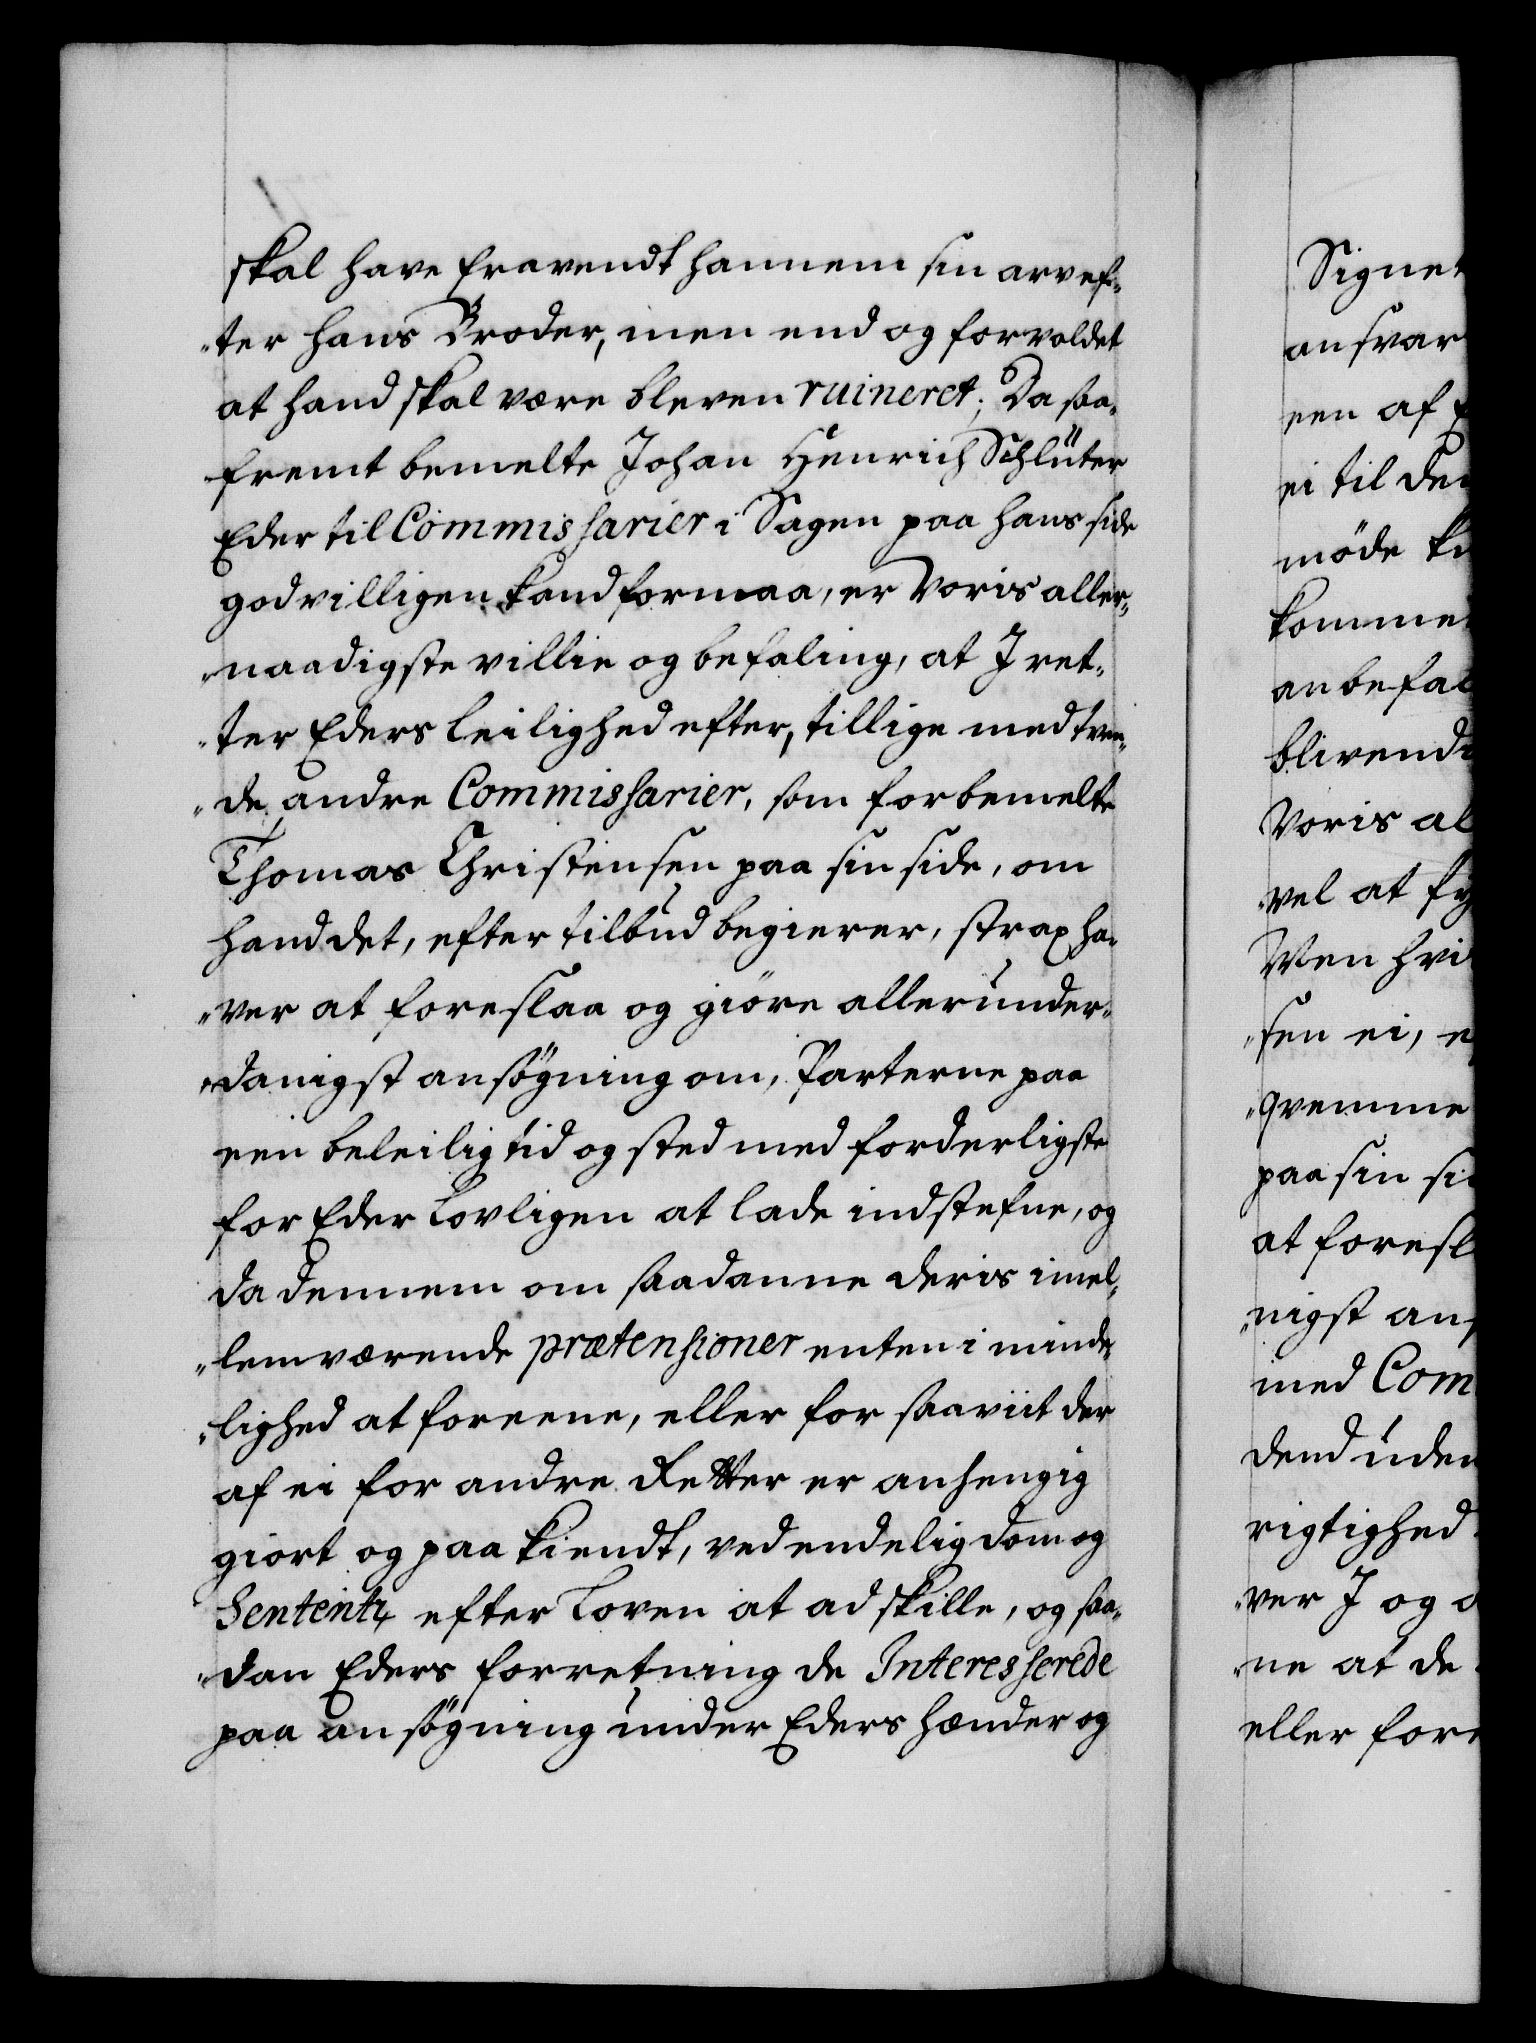 skal have fravendt hannem sin arv ef-
"ter hans Broder, men end og forvoldet
at hand skal være bleven ruineret; Da saa-
fremt bemelte Johan Henrich Schlüter
Eder til Commissarier i Sagen paa hans side
godvilligen kand formaa, er Voris aller-
"naadigste villie og befaling, at I ret-
"ter Eders leilighed efter, tillige med tven-
"de andre Commissarier, som forbemelte
Thomas Christensen paa sin side, om
hand det, efter tilbud begierer, strax ha-
"ver at foreslaa og giöre allerunder-
"danigst ansögning om, Parterne paa
een beleilig tid og sted med forderligste
for Eder Lovligen at lade indstefne, og
da dennem om saadanne deris imel-
"lemværende prætensioner enten i minde-
"lighed at foreene, eller for saaviit der
af ei for andre Retter er anhengig
giort og paa kiendt, ved endelig dom og
Sententz efter Loven at adskille, og saa-
"dan Eders forretning de Interesserede
paa ansögning under Eders hænder og
Signet
ansvar
een af
ei til de
möde k
komme
anbefal
blivend
Voris al
vel at fy
Men hvi
"sen ei, e
"qvemme
paa sin si
at foresl
"nigst ans
med Com
dend uden
rigtighed
"ver I og
"ne at de
eller fore